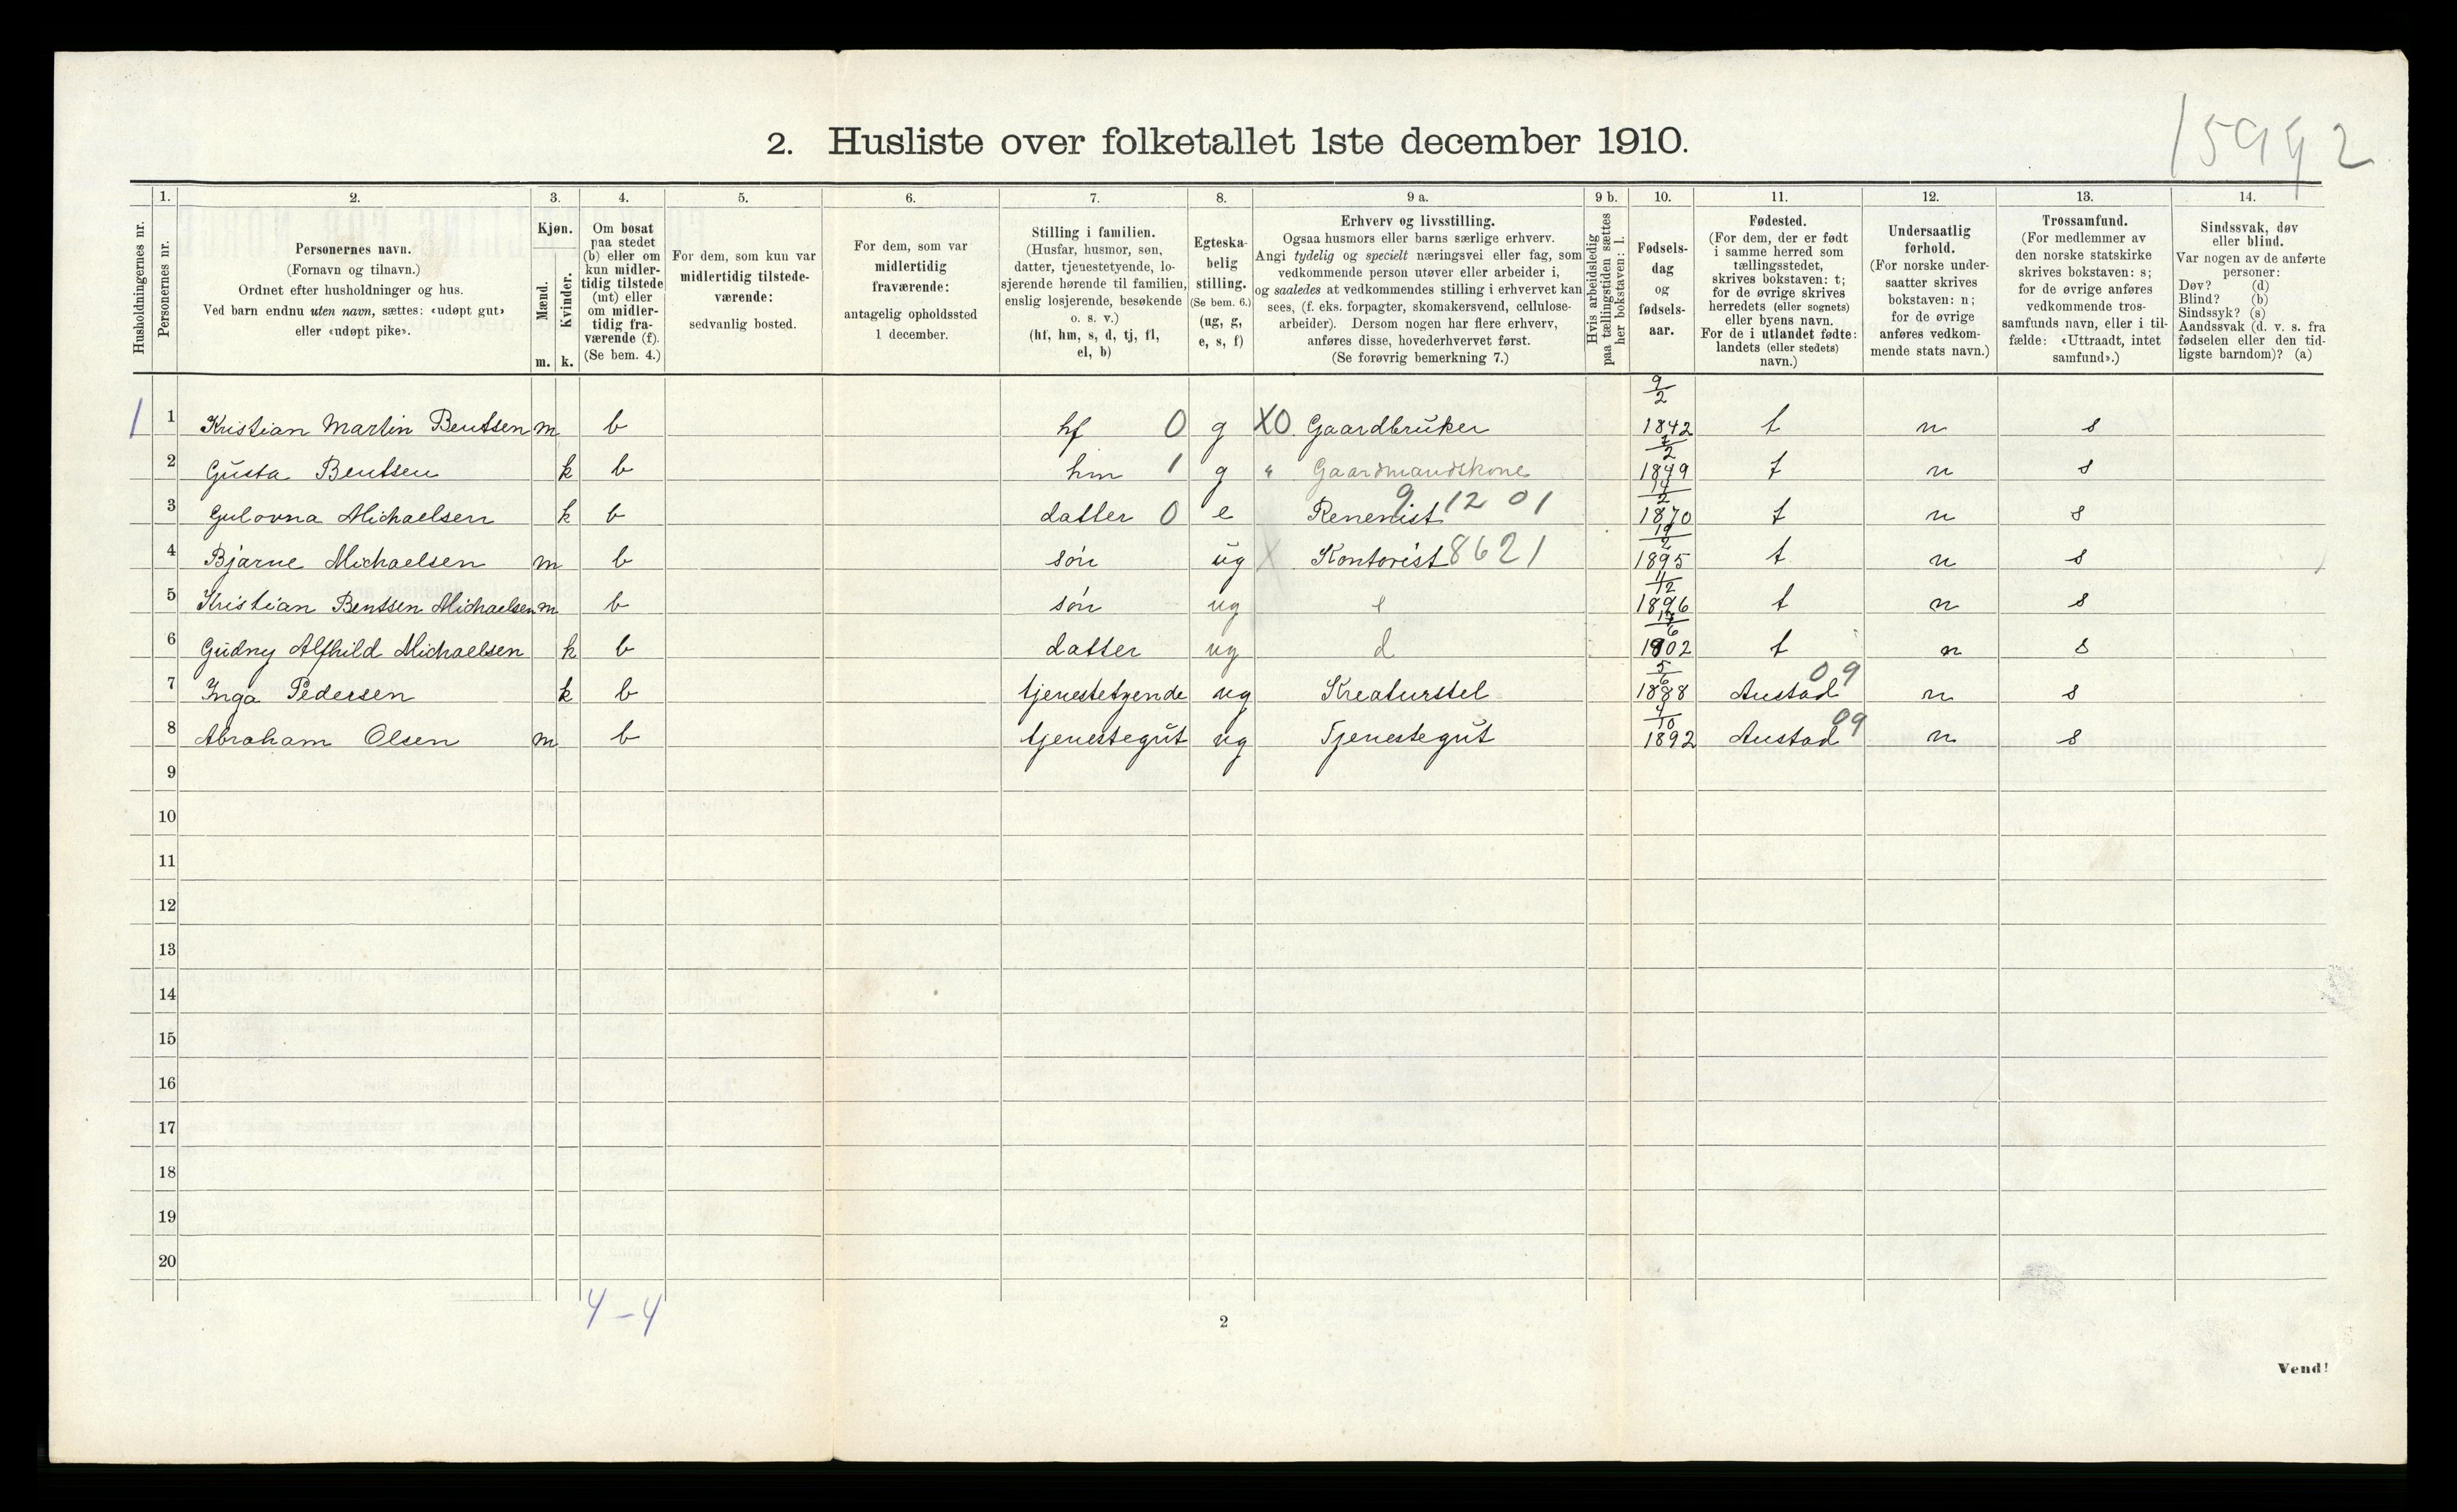 2. Husliste over folketallet 1ste december 1910.
1. 2. 3. 4. 5. 6. 7. 8. 9 a. 9 b. 10. 11. 12. 13. 14.
Husholdningernes nr.
Personernes nr.
Personernes navn.
(Fornavn og tilnavn.)
Ordnet efter husholdninger og hus.
Ved barn endnu uten navn, sættes: «udøpt gut»
eller «udøpt pike».
Kjøn.
Mænd.
Kvinder.
m. k.
Om bosat
paa stedet
(b) eller om
kun midler-
tidig tilstede
(mt) eller
om midler-
tidig fra-
værende (f).
(Se bem. 4.)
For dem, som kun var
midlertidig tilstede-
værende:
sedvanlig bosted.
For dem, som var
midlertidig
fraværende:
antagelig opholdssted
1 december.
Stilling i familien.
(Husfar, husmor, søn,
datter, tjenestetyende, lo-
sjerende hørende til familien,
enslig losjerende, besøkende
o. s. v.)
(hf, hm, s, d, tj, fl,
el, b)
Egteska-
belig
stilling.
(Se bem. 6.)
(ug, g,
e, s, f)
Erhverv og livsstilling.
Ogsaa husmors eller barns særlige erhverv.
Angi tydelig og specielt næringsvei eller fag, som
vedkommende person utøver eller arbeider i,
og saaledes at vedkommendes stilling i erhvervet kan
sees, (f. eks. forpagter, skomakersvend, cellulose-
arbeider). Dersom nogen har flere erhverv,
anføres disse, hovederhvervet først.
(Se forøvrig bemerkning 7.)
Hvis arbeidsledig
paa tællingstiden sættes
her bokstaven: l.
Fødsels-
dag
og
fødsels-
aar.
Fødested.
(For dem, der er født
i samme herred som
tællingsstedet,
skrives bokstaven: t;
for de øvrige skrives
herredets (eller sognets)
eller byens navn.
For de i utlandet fødte:
landets (eller stedets)
navn.)
Undersaatlig
forhold.
(For norske under-
saatter skrives
bokstaven: n;
for de øvrige
anføres vedkom-
mende stats navn.)
Trossamfund.
(For medlemmer av
den norske statskirke
skrives bokstaven: s;
for de øvrige anføres
vedkommende tros-
samfunds navn, eller i til-
fælde: «Uttraadt, intet
samfund».)
Sindssvak, døv
eller blind.
Var nogen av de anførte
personer:
Døv? (d)
Blind? (b)
Sindssyk? (s)
Aandssvak (d. v. s. fra
fødselen eller den tid-
ligste barndom)? (a)
1 1 Kristian Martin Bentsen m b hf 0 g XO Gaardbruker 9/2 1842 t n s
2 Gusta Bentsen k b hm 1 g " Gaardmandskone 7/2 1849 t n s
3 Gulovna Michaelsen k b datter 0 e 9 12 01 14/2 1870 t n s
4 Bjarne Michaelsen m b søn ug X Kontorist 8621 19/2 1895 t n s
5 Kristian Bentsen Michaelsen m b søn ug 11/12 1896 t n s
6 Gudny Alfhild Michaelsen k b datter ug d 1902 t n s
7 Inga Pedersen k b tjenestetyende ug Kreaturstel 5/6 1888 Austad 09 n s
8 Abraham Olsen m b tjenestegut ug Tjenestegut 4/10 1892 Austad 09 n s
9
10
11
12
13
14
15
16
17
18
19
20
4 – 4
2
Vend!